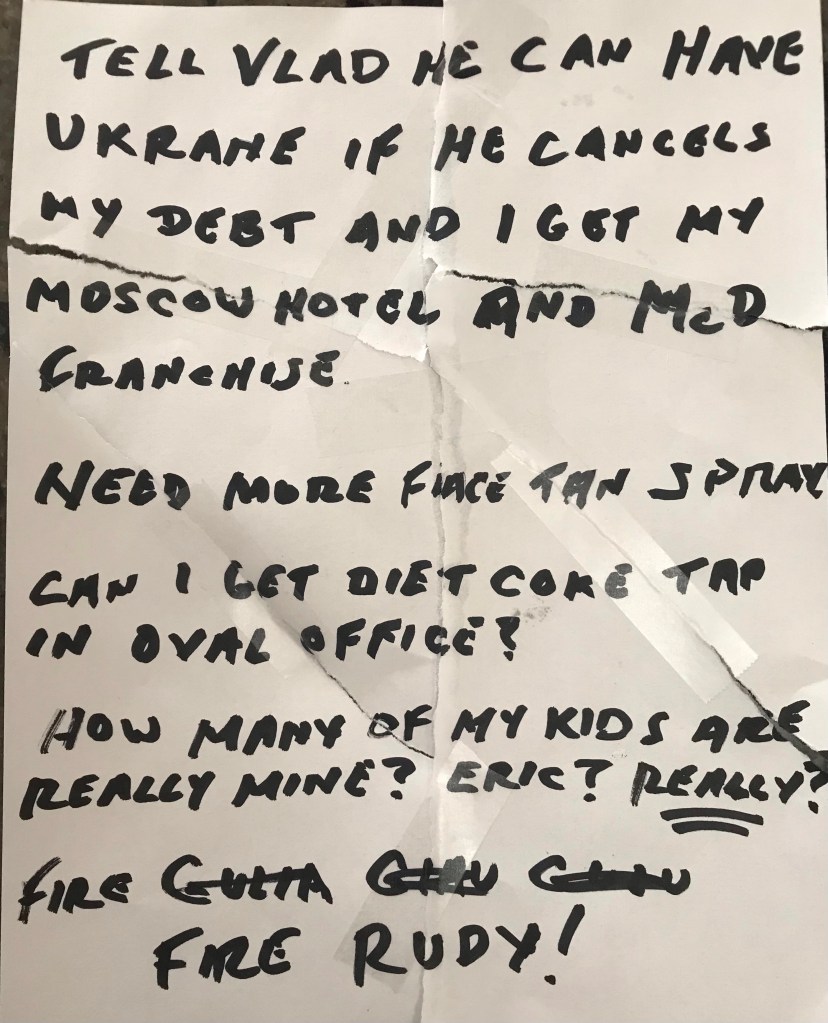 TELL VLAD HE CAN HAVE
UKRANE IF HE CANCELS
MY DEBT AND I GET MY
MOSCOW HOTEL AND McD
FRANCHISE.
NEED MORE FIACE TAN SPRAY
CAN I GET DIET COKE TAP
IN OVAL OFFICE?
HOW MANY OF MY KIDS ARE
REALLY MINE? ERIC? REALLY?
FIRE
FIRE RUDY!